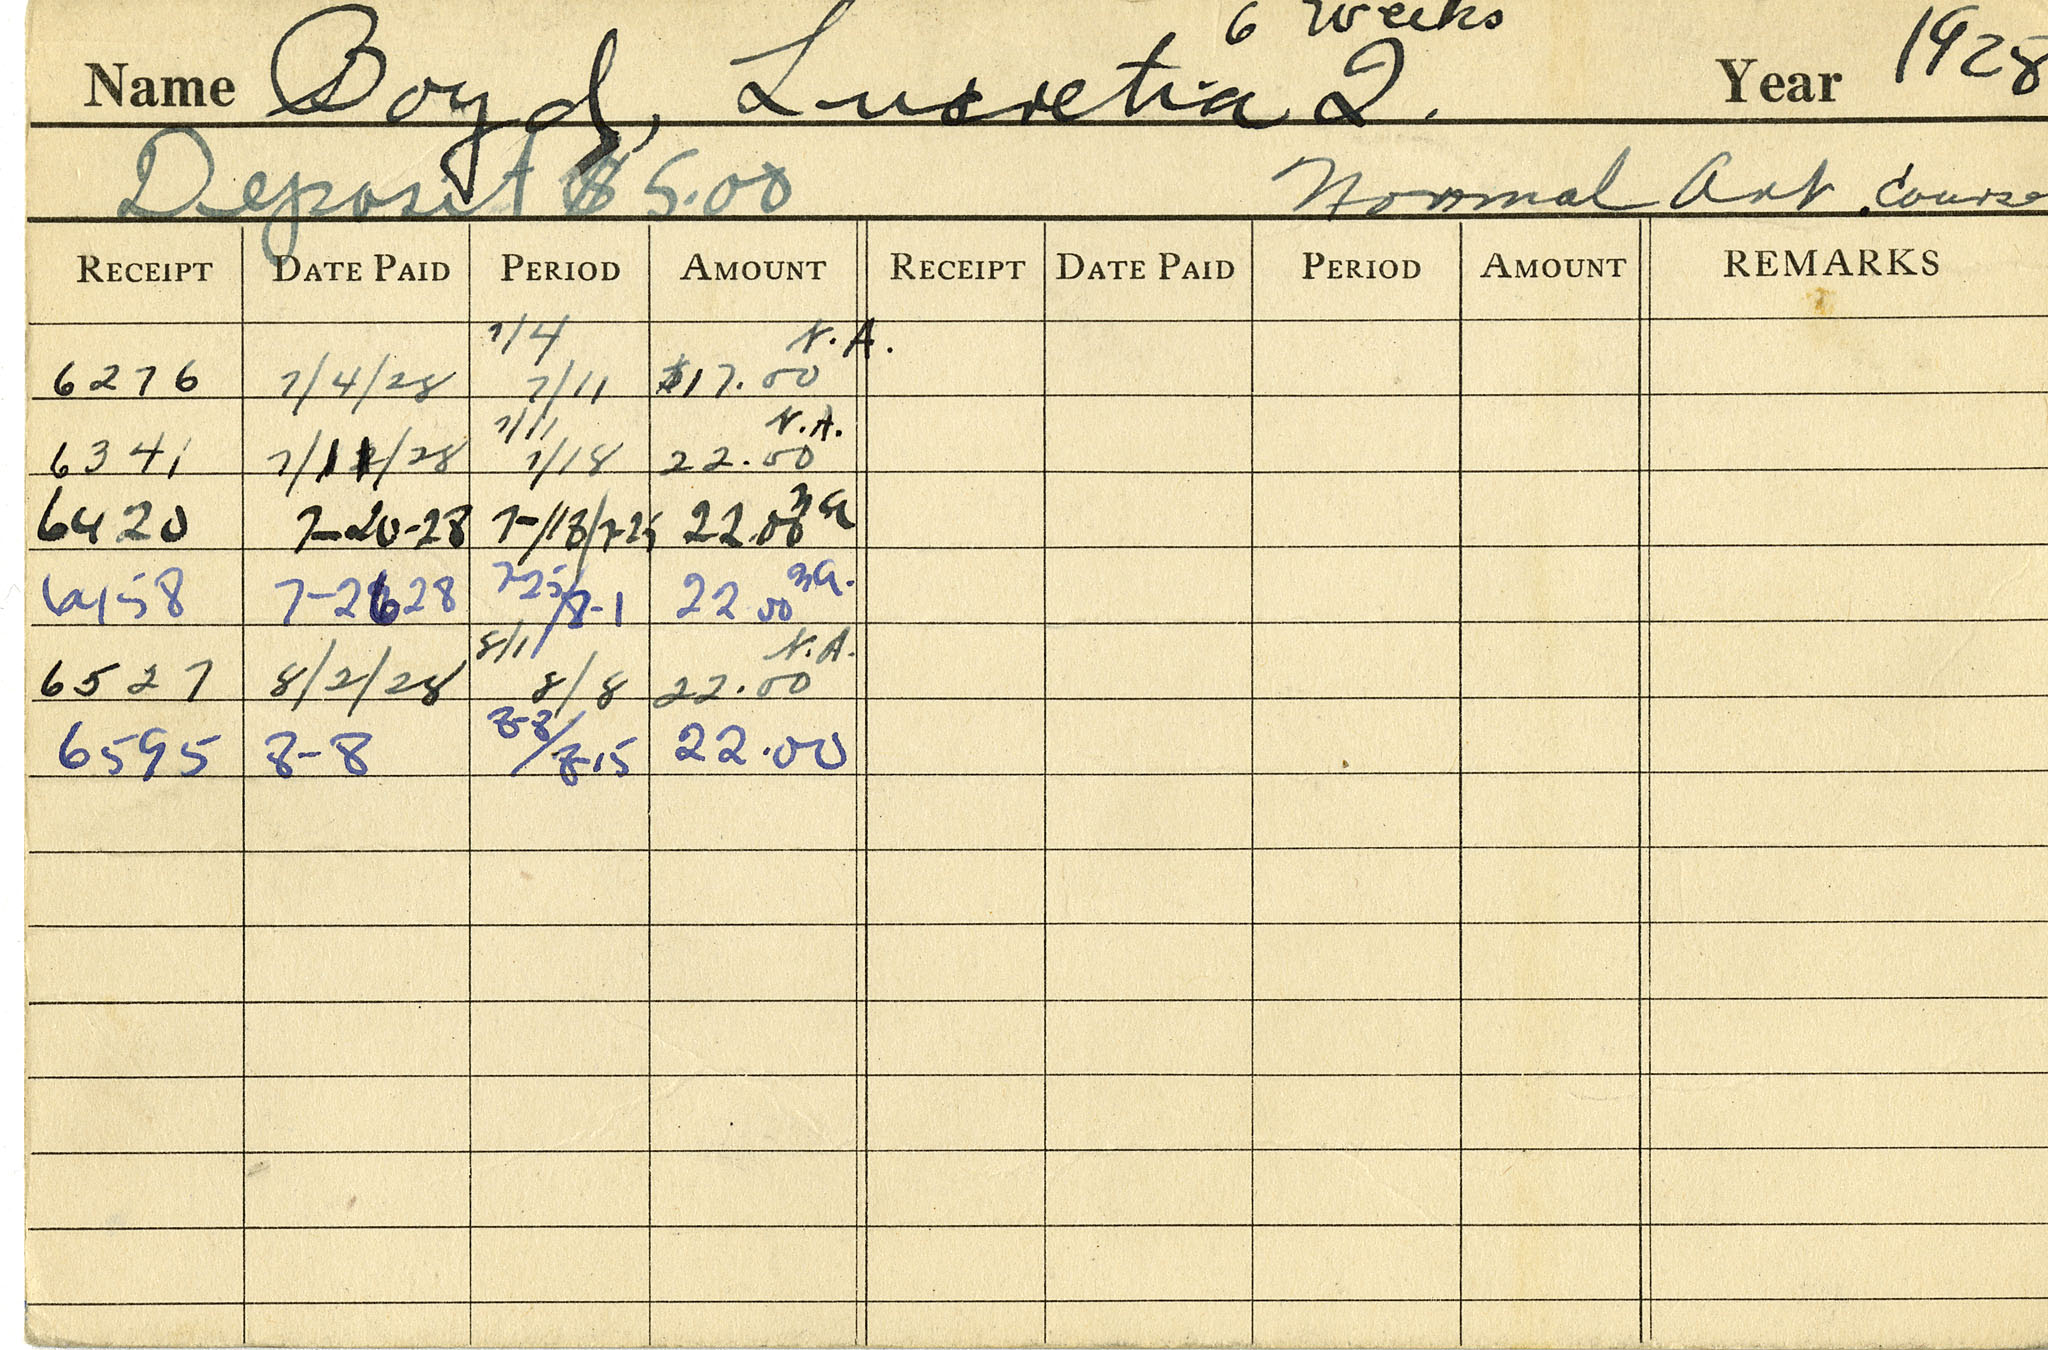 6 Weeks
Name Boyd, Lucretia Q. Year 1928
Deposit $5.00 Normal Art Course
RECEIPT DATE PAID PERIOD AMOUNT RECEIPT DATE PAID PERIOD AMOUNT REMARKS
7/4 N.A.
6276 7/4/28 7/11 $17.00
7/11 N.A.
6341 7/11/28 7/18 22.00
6420 7-20-28 7-18/7-25 22.00 NA
6458 7-26 28 7-25/8-1 22.00 NA.
8/1 N.A.
6527 8/2/28 8/8 22.00
6595 8-8 8-8/8-15 22.00